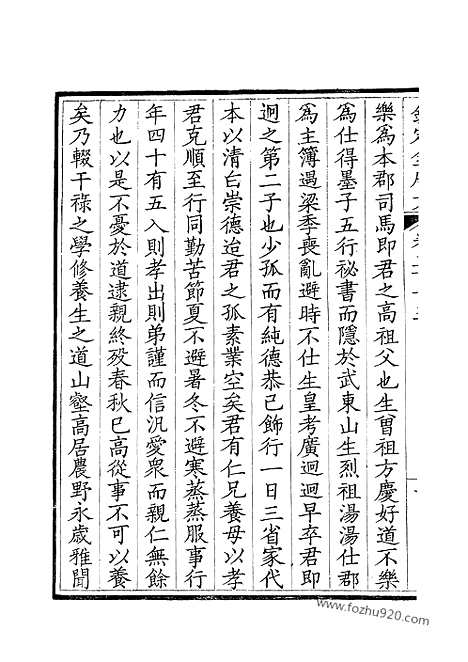 樂為本郡司馬即君之高祖父也生曾祖方慶好道不樂
為仕得墨子五行祕書而隱於武東山生烈祖湯湯仕郡
為主簿遇梁季喪亂避時不仕生皇考廣迥迥早卒君即
迥之第二子也少孤而有純德恭已飾行一日三省家代
本以清白崇德迨君之孤素業空矣君有仁兄養母以孝
君克順至行同勤苦節夏不避暑冬不避寒蒸蒸服事行
年四十有五入則孝出則弟謹而信汎愛衆而親仁無餘
力也以是不憂於道逮親終歿春秋已高從事不可以養
矣乃輟干祿之學修養生之道山壑高居農野永歲雅聞
www.fozhu920.com